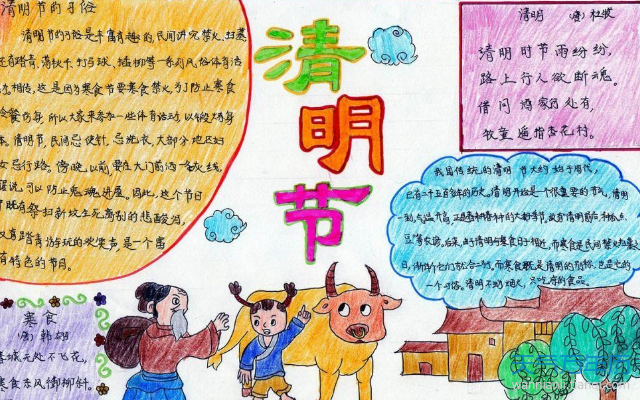 清明节的习俗
清明节的习俗是丰富有趣的,民间讲究禁火、扫墓,
还有踏青、荡秋千、打马球、插柳等一系列风俗体育活
动。相传,这是因为寒食节要禁火,为了防止寒食
冷餐伤身,所以大家来参加一些体育活动,以锻炼身
体。清明节,民间忌使针,忌洗衣,大部分地区妇
女忌行路。傍晚以前,要在大门前洒一条灰线,
据说可以防止鬼魂进屋。因此,这个节日
中既有祭扫新坟生死离别的悲酸泪,
又有踏青游玩的欢笑声,是一个富
有特色的节日。
清
明
节
清明 (唐)杜牧
清明时节雨纷纷,
路上行人欲断魂。
借问酒家何处有,
牧童遥指杏花村。
我国传统的清明节大约始于周代,
已有二千五百多年的历史。清明开始是一个很重要的节气,清明
一到,气温升高,正是春耕春种的大好时节,故有清明前后种瓜点
豆等农谚。后来,由于清明与寒食日子相近,而寒食是民间禁火扫墓的
日,渐渐
而寒食既是清明的别称,也是
一个习俗。清明不动烟火,只吃凉的食品。
寒食
(唐)韩翃
春城无处不飞花,
寒食东风御柳斜。
wannianli.tianqi.com